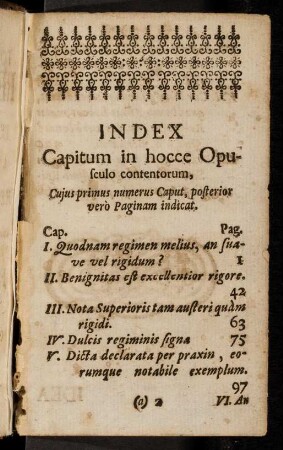 INDEX
Capitum in hocce Opu-
sculo contentorum,
Cujus primus numerus Caput, posterior
verò Paginam indicat.
Cap. Pag.
I. Quodnam regimen melius, an sua-
ve vel rigidum? 1
II. Benignitas est excellentior rigore.
42
III. Nota Superioris tam austeri quàm
rigidi. 63
IV. Dulcis regiminis signa 75
V. Dicta declarata per praxin, eo-
rumque notabile exemplum.
97
(a) 2 VI. An